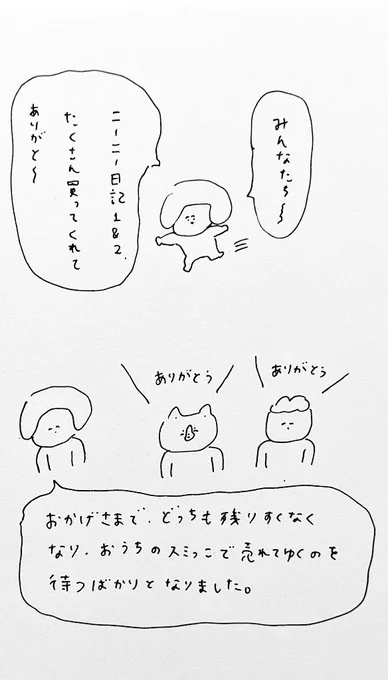 みんなたち〜〜
ニーニー日記1&2
たくさん買ってくれて
ありがと〜
ありがとう
ありがとう
おかげさまで、どっちも残りすくなく
なり、おうちのスミっこで売れてゆくのを
待つばかりとなりました。